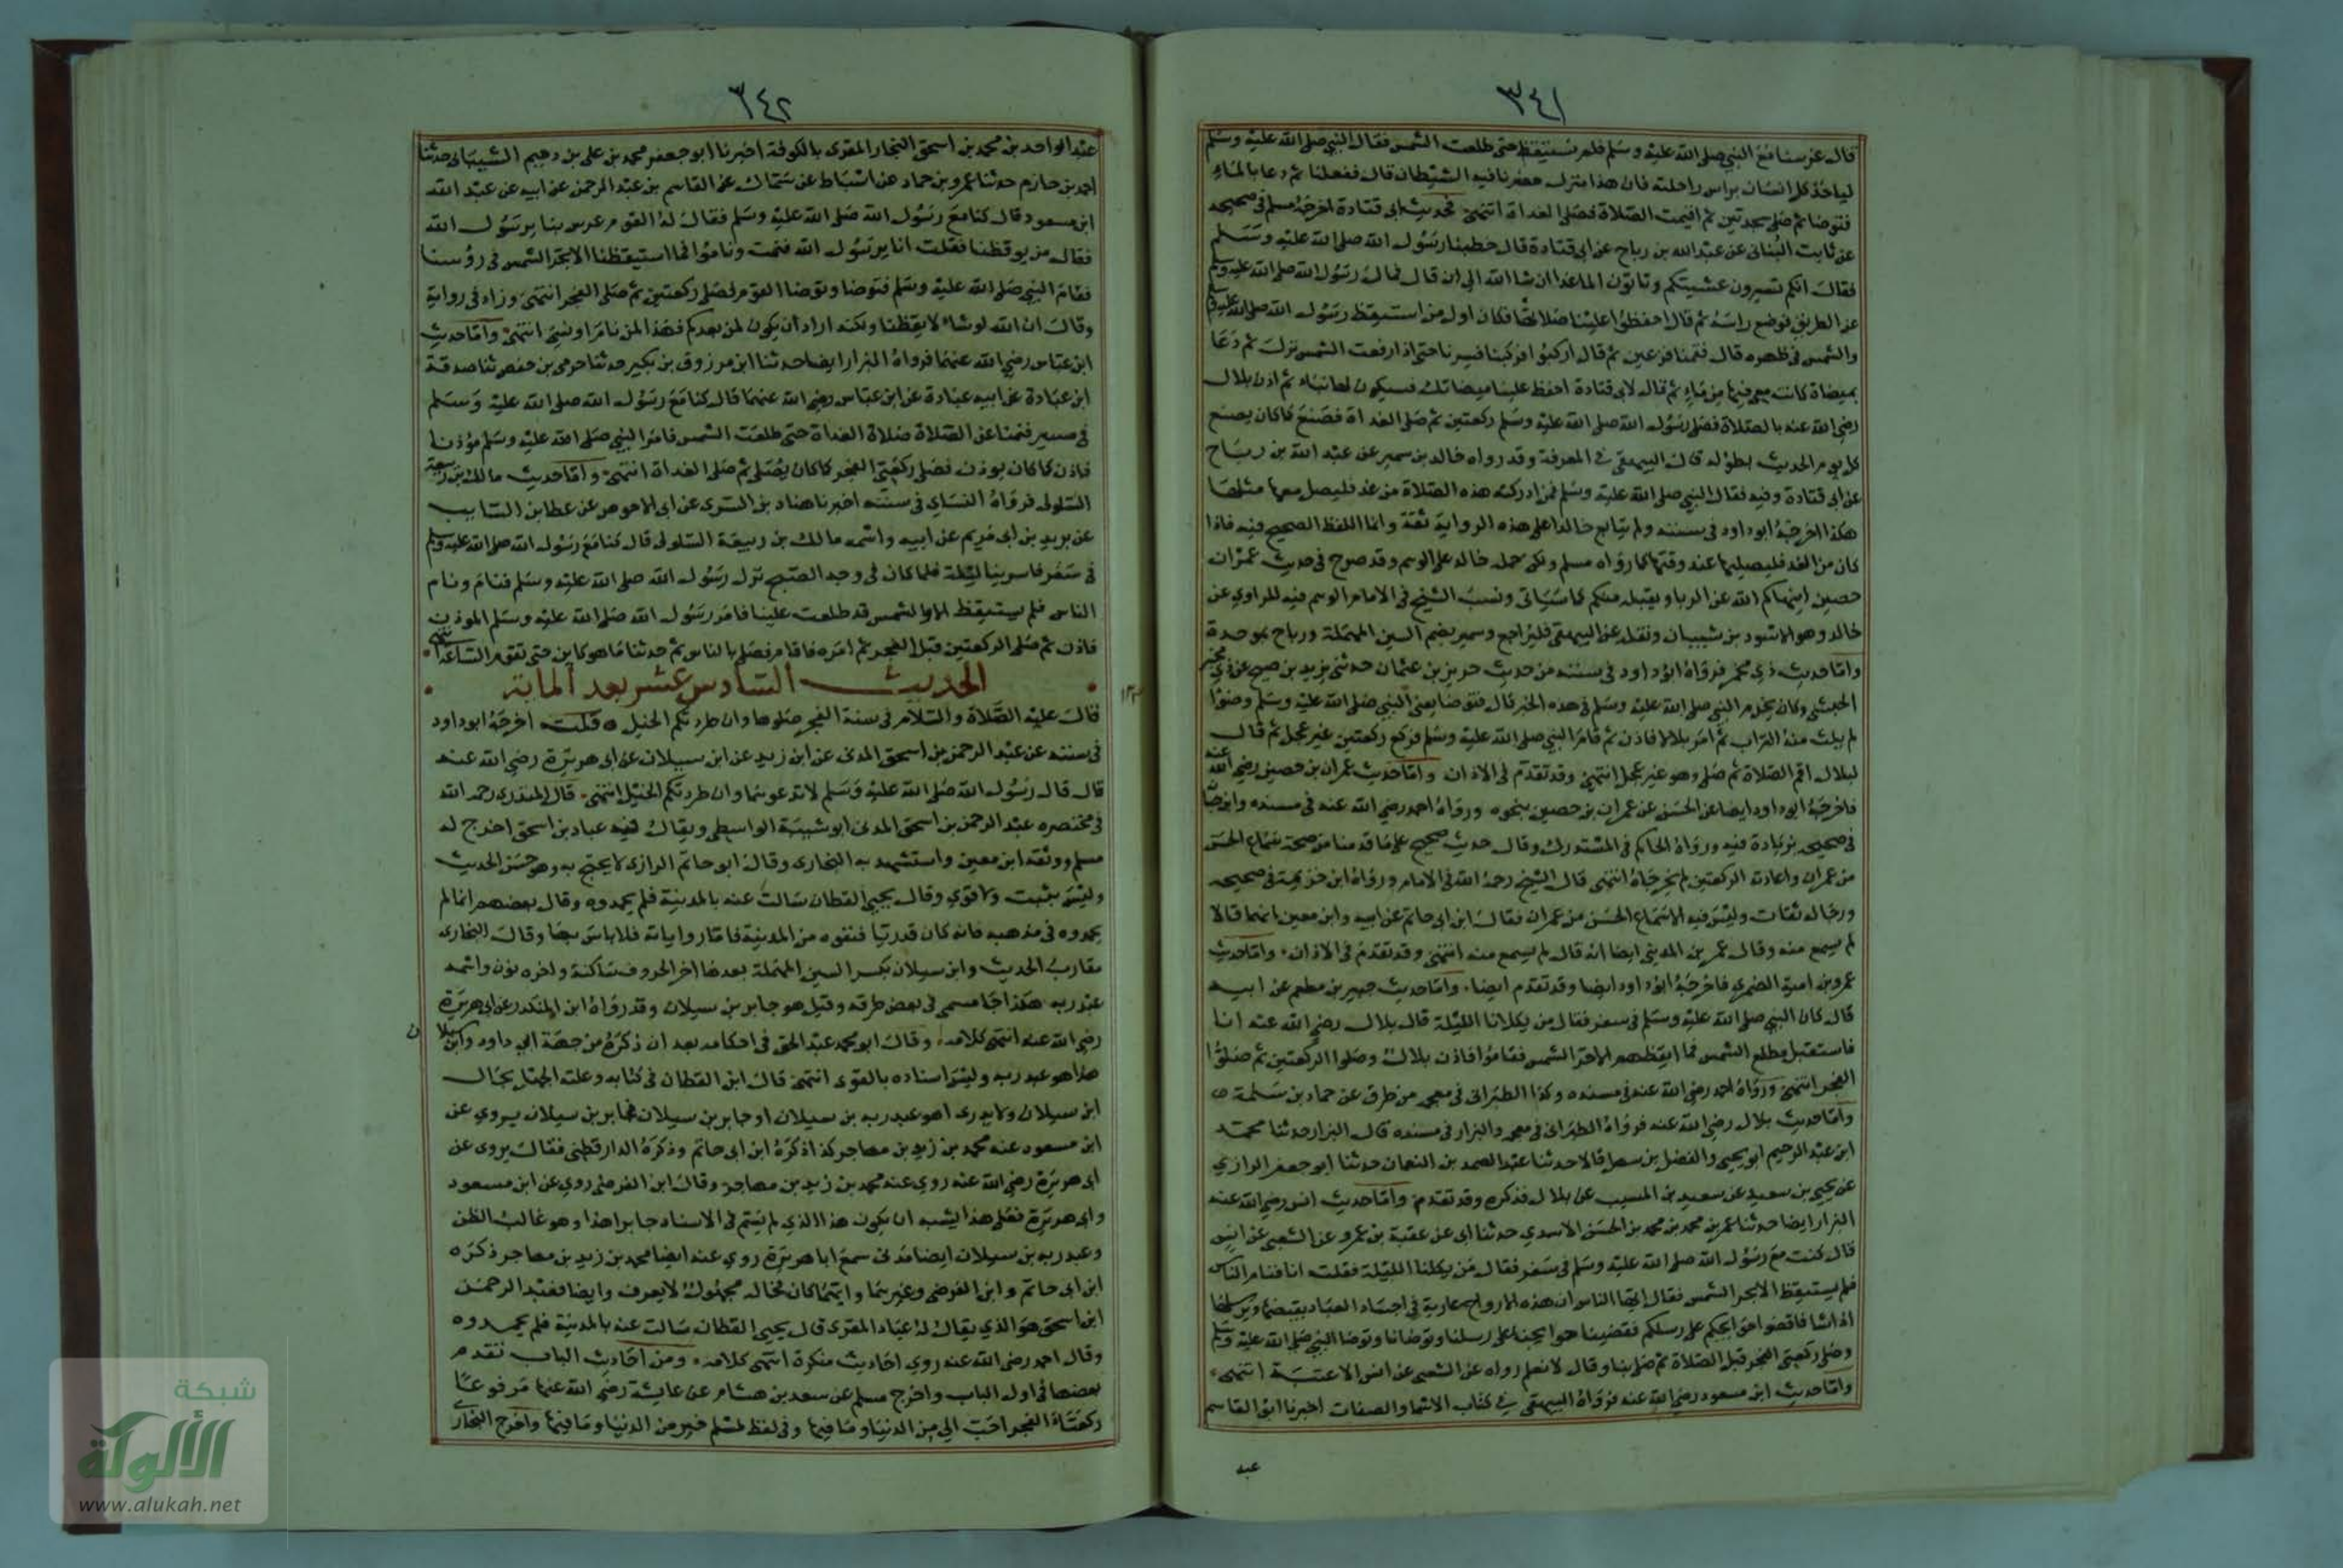 ٣٤١
قال عرسنا مع النبي صلى الله عليه وسلم فلم نستيقظ حتى طلعت الشمس فقال النبي صلى الله عليه وسلم
لياخذ كل انسان براس راحلته فان هذا منزل حضرنا فيه الشيطان قال ففعلنا ثم دعا بالماء
فتوضا ثم صلى سجدتين ثم اقيمت الصلاة فصلى الغداة انتهى وحديث ابى قتادة اخرجه مسلم فى صحيحه
عن ثابت البنانى عن عبد الله بن رباح عن ابى قتادة قال خطبنا رسول الله صلى الله عليه وسلم
فقال انكم تسيرون عشيتكم وتاتون الماء غدا ان شا الله الى ان قال فمال رسول الله صلى الله عليه وسلم
عن الطريق فوضع راسه ثم قال احفظوا علينا صلاتنا فكان اول من استيقظ رسول الله صلى الله عليه وسلم
والشمس فى ظهره قال فقمنا فزعين ثم قال اركبوا فركبنا فسرنا حتى اذا ارتفعت الشمس نزل ثم دعا
بميضاة كانت معى فيها من ماء ثم قال لابى قتادة احفظ علينا ميضاتك فسيكون لها نباء ثم اذن بلال
رضى الله عنه بالصلاة فصلى رسول الله صلى الله عليه وسلم ركعتين ثم صلى الغداة فصنع كما كان يصنع
كل يوم الحديث بطوله قال البيهقى فى المعرفة وقد رواه خالد بن سمير عن عبد الله بن رباح
عن ابى قتادة وفيه فقال النبي صلى الله عليه وسلم فمن ادركته هذه الصلاة من غد فليصل معها مثلها
هكذا اخرجه ابو داود فى سننه ولم يتابع خالدا على هذه الرواية ثقة وانما اللفظ الصحيح فيه فاذا
كان من الغد فليصليها عند وقتها كما رواه مسلم ولكن حمله خالد على الوهم وقد صرح فى حديث عمران
حصين اينهاكم الله عن الربا ويقبله منكم كما سياتى ونسب الشيخ فى الامام الوهم فيه للراوي عن
خالد وهو الاسود بن شيبان ونقله عن البيهقى فليراجع وسمير بضم السين المهملة ورباح بموحدة
واما حديث ذي مخمر فرواه ابو داود فى سننه من حديث حريز بن عثمان حدثنى يزيد بن صبيح عن ذي مخبر
الحبشى وكان يخدم النبي صلى الله عليه وسلم فى هذه الخبر قال فتوضا يعنى النبي صلى الله عليه وسلم وضوا
لم يلث منه التراب ثم امر بلالا فاذن ثم قام النبي صلى الله عليه وسلم فركع ركعتين غير عجل ثم قال
لبلال اقم الصلاة ثم صلى وهو غير عجل انتهى وقد تقدم فى الاذان واما حديث عمران بن حصين رضي الله عنه
فاخرجه ابو داود ايضا عن الحسن عن عمران بن حصين بنحوه ورواه احمد رضي الله عنه فى مسنده وابن حبان
فى صحيحه بزيادة فيه ورواه الحاكم فى المستدرك وقال حديث صحيح على ما قدمنا من صحة سماع الحسن
من عمران واعادته الركعتين لم يخرجاه انتهى قال الشيخ رحمه الله فى الامام ورواه ابن خزيمة فى صحيحه
ورجاله ثقات وليس فيه الا سماع الحسن من عمران فقال ابن ابى حاتم عن ابيه وابن معين انهما قالا
لم يسمع منه وقال عمر بن المدينى ايضا انه قال لم يسمع منه انتهى وقد تقدم فى الاذان واما حديث
عمرو بن امية الضمرى فاخرجه ابو داود ايضا وقد تقدم ايضا واما حديث جبير بن مطعم عن ابيه
قال كان النبي صلى الله عليه وسلم فى سفر فقال من يكلانا الليلة قال بلال رضي الله عنه انا
فاستقبل مطلع الشمس فما ايقظهم الا حر الشمس فقاموا فاذن بلال وصلوا الركعتين ثم صلوا
الفجر انتهى ورواه احمد رضي الله عنه فى مسنده وكذا الطبرانى فى معجمه من طرق عن حماد بن سلمة
واما حديث بلال رضي الله عنه فرواه الطبرانى فى معجمه والبزار فى مسنده قال البزار حدثنا محمد
ابن عبد الرحيم ابو يحيى والفضل بن سهل قالا حدثنا عبد الصمد بن النعمان حدثنا ابو جعفر الرازي
عن يحيى بن سعيد عن سعيد بن المسيب عن بلال فذكره وقد تقدم واما حديث انس رضي الله عنه
البزار ايضا حدثنا عمر بن محمد بن محمد بن الحسن الاسدي حدثنا ابى عن عقبة بن عمرو عن الشعبى عن انس
قال كنت مع رسول الله صلى الله عليه وسلم فى سفر فقال من يكلنا الليلة فقلت انا فنام الناس
فلم يستيقظ الا بحر الشمس فقال ايها الناس ان هذه الارواح عارية فى اجساد العباد يقبضها ويرسلها
اذا شا فاقضوا حوايجكم على رسلكم فقضينا حوايجنا على رسلنا وتوضانا وتوضا النبي صلى الله عليه وسلم
وصلى ركعتى الفجر قبل الصلاة ثم صلى بنا وقال لا نعلم رواه عن الشعبى عن انس الا عتبة انتهى
واما حديث ابن مسعود رضي الله عنه فرواه البيهقى فى كتاب الاسما والصفات اخبرنا ابو القاسم
عبد
٣٤٢
عبد الواحد بن محمد بن اسحق النجار المقرى بالكوفة اخبرنا ابو جعفر محمد بن على بن دحيم الشيبانى حدثنا
احمد بن حازم حدثنا عمرو بن حماد عن اسباط عن سماك عن القاسم بن عبد الرحمن عن ابيه عن عبد الله
ابن مسعود قال كنا مع رسول الله صلى الله عليه وسلم فقال له القوم عرس بنا يرسول الله
فقال من يوقظنا فقلت انا يرسول الله فنمت وناموا فما استيقظنا الا بحر الشمس فى رؤسنا
فقام النبي صلى الله عليه وسلم فتوضا وتوضا القوم فصلى ركعتين ثم صلى الفجر انتهى وزاد فى رواية
وقال ان الله لو شاء لايقظنا ولكنه اراد ان يكون لمن بعدكم فهذا لمن نام او نسى انتهى واما حديث
ابن عباس رضي الله عنهما فرواه البزار ايضا حدثنا ابن مرزوق بن بكير حدثنا حرمى بن حفص ثنا صدقة
ابن عبادة عن ابيه عبادة عن ابن عباس رضي الله عنهما قال كنا مع رسول الله صلى الله عليه وسلم
فى مسير فنمنا عن الصلاة صلاة الغداة حتى طلعت الشمس فامر النبي صلى الله عليه وسلم مؤذنا
فاذن كما كان يوذن فصلى ركعتى الفجر كما كان يصلى ثم صلى الغداة انتهى واما حديث مالك بن ربيعة
السلولى فرواه النساى فى سننه اخبرنا هناد بن السري عن ابى الاحوص عن عطا بن السايب
عن بريد بن ابى مريم عن ابيه واسمه مالك بن ربيعة السلولى قال كنا مع رسول الله صلى الله عليه وسلم
فى سفر فاسرينا ليلة فلما كان فى وجه الصبح نزل رسول الله صلى الله عليه وسلم فنام ونام
الناس فلم يستيقظ الا والشمس قد طلعت علينا فامر رسول الله صلى الله عليه وسلم الموذن
فاذن ثم صلى الركعتين قبل الفجر ثم امره فاقام فصلى بالناس ثم حدثنا ما هو كاين حتى تقوم الساعة انتهى
الحديث السادس عشر بعد الماية
قال عليه الصلاة والسلام فى سنة الفجر صلوها وان طردتكم الخيل قلت اخرجه ابو داود
فى سننه عن عبد الرحمن بن اسحق المدنى عن ابن زيد عن ابن سيلان عن ابى هريرة رضي الله عنه
قال قال رسول الله صلى الله عليه وسلم لا تدعوهما وان طردتكم الخيل انتهى قال المنذرى رحمه الله
فى مختصره عبد الرحمن بن اسحق المدنى ابو شيبة الواسطى ويقال فيه عباد بن اسحق اخرج له
مسلم ووثقه ابن معين واستشهد به البخارى وقال ابو حاتم الرازى لا يحتج به وهو حسن الحديث
وليس بثبت ولا قوي وقال يحيى القطان سالت عنه بالمدينة فلم يحمدوه وقال بعضهم انما لم
يحمدوه فى مذهبه فانه كان قدريا فنفوه من المدينة فاما رواياته فلا باس بها وقال البخارى
مقارب الحديث وابن سيلان بكسر السين المهملة بعدها اخر الحروف ساكنة واخره نون واسمه
عبد ربه هكذا جا مسمى فى بعض طرقه وقيل هو جابر بن سيلان وقد رواه ابن المنكدر عن ابى هريرة
رضي الله عنه انتهى كلامه وقال ابو محمد عبد الحق فى احكامه بعد ان ذكره من جهة ابي داود وابن سيلان
هذا هو عبد ربه وليس اسناده بالقوى انتهى قال ابن القطان فى كتابه وعلته الجهل بحال
ابن سيلان ولا يدرى اهو عبد ربه بن سيلان او جابر بن سيلان فجابر بن سيلان يروي عن
ابن مسعود عنه محمد بن زيد بن مهاجر كذا ذكره ابن ابى حاتم وذكره الدارقطنى فقال يروى عن
ابى هريرة رضي الله عنه روي عنه محمد بن زيد بن مهاجر وقال ابن الفرضى روي عن ابن مسعود
وابى هريرة فعلى هذا يشبه ان يكون هذا الذي لم يتم فى الاسناد جابرا هذا وهو غالب الظن
وعبد ربه بن سيلان ايضا مدنى سمع ابا هريرة روي عنه ايضا محمد بن زيد بن مهاجر ذكره
ابن ابى حاتم وابن الفرضى وغيرهما وايهما كان فحاله مجهول لا يعرف وايضا فعبد الرحمن
ابن اسحق هو الذي يقال له عباد المقرى قال يحيى القطان سالت عنه بالمدينة فلم يحمدوه
وقال احمد رضي الله عنه روي احاديث منكرة انتهى كلامه ومن احاديث الباب تقدم
بعضها فى اول الباب واخرج مسلم عن سعد بن هشام عن عايشة رضي الله عنها مرفوعا
ركعتاه الفجر احب الي من الدنيا وما فيها وفى لفظ لمسلم خير من الدنيا وما فيها واخرج البخارى
شبكة
الألوكة
www.alukah.net